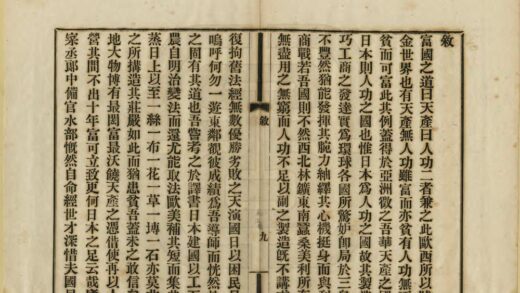 敘
富國之道曰天產曰人功二者兼之此歐西所以
金世界也有天產無人功雖富而亦貧有人功無
貧而可富此其例蓋得於亞洲徵之吾華天產之國
日本則人功之國也惟日本爲人功之國故其製
巧工商之發達實爲環球各國所驚妒卽局於三
不豐然猶能發揮其腕力紬繹其心機挺身而與
商戰若吾國則不然西北林鑛東南蠶桑美利所
無盡用之無窮而人功不足以副之製造旣不講
敘
九
復拘舊法經無數優勝劣敗之天演國日以困民
嗚呼何勿一遊東鄰觀彼成績爲吾導師而恍然
之固有其道也吾嘗考之於譯書日本建國以工
農自明治變法而還尤能取法歐美補其短而集
蒸日上以至一絲一布一花一草一塼一石亦莫
之所搆造其莊嚴如此而猶患貧吾蓋未之敢信
地大物博有最閎富最沃饒天產之憑借使再以人
營其間不出十年富可立致更何日本之足云哉
寀丞郎中備官水部慨然自命經世才深惜夫國民